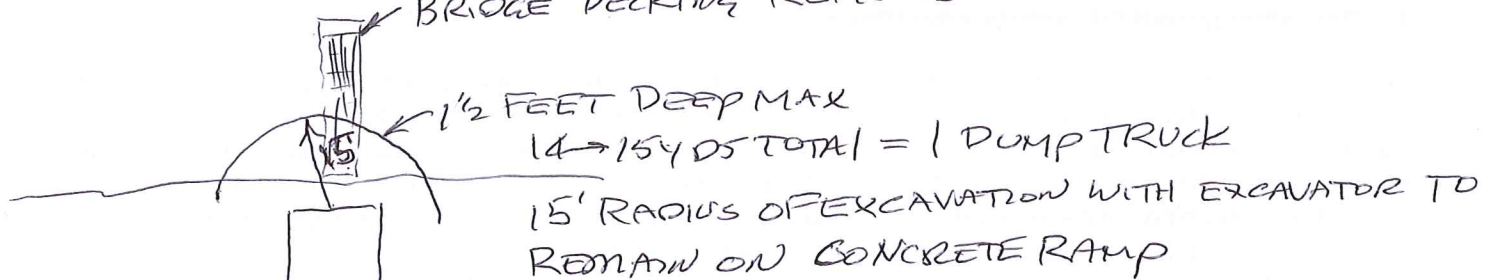 BRIDGE DECKING
1 1/2 FEET DEEP MAX
14→15 YDS TOTAL = 1 DUMP TRUCK
15
15' RADIUS OF EXCAVATION WITH EXCAVATOR TO
REMAIN ON CONCRETE RAMP